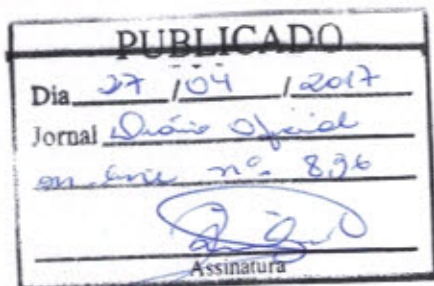 PUBLICADO
Dia 27 /04 /2017
Jornal Diário Oficial
on-line nº 896
Assinatura